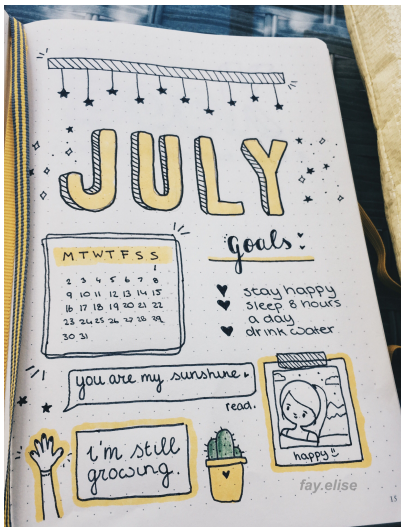 JULY
M T W T F S S
1
2 3 4 5 6 7 8
9 10 11 12 13 14 15
16 17 18 19 20 21 22
23 24 25 26 27 28 29
30 31
Goals:
stay happy
sleep 8 hours
a day
drink water
you are my sunshine
read.
i'm still
growing.
happy
fay.elise
13